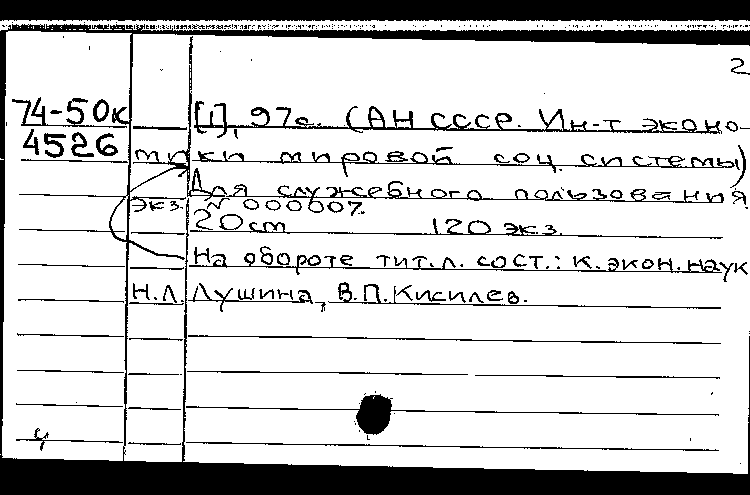 2
74-50к [1], 97с. (АН СССР. Ин-т эконо-
4526 мики мировой соц. системы)
Для служебного пользования
экз. № 000007.
20 cm 120 экз.
На обороте тит.л. сост.: к.экон.наук
Н.Л. Лушина, В.П. Кисилев.